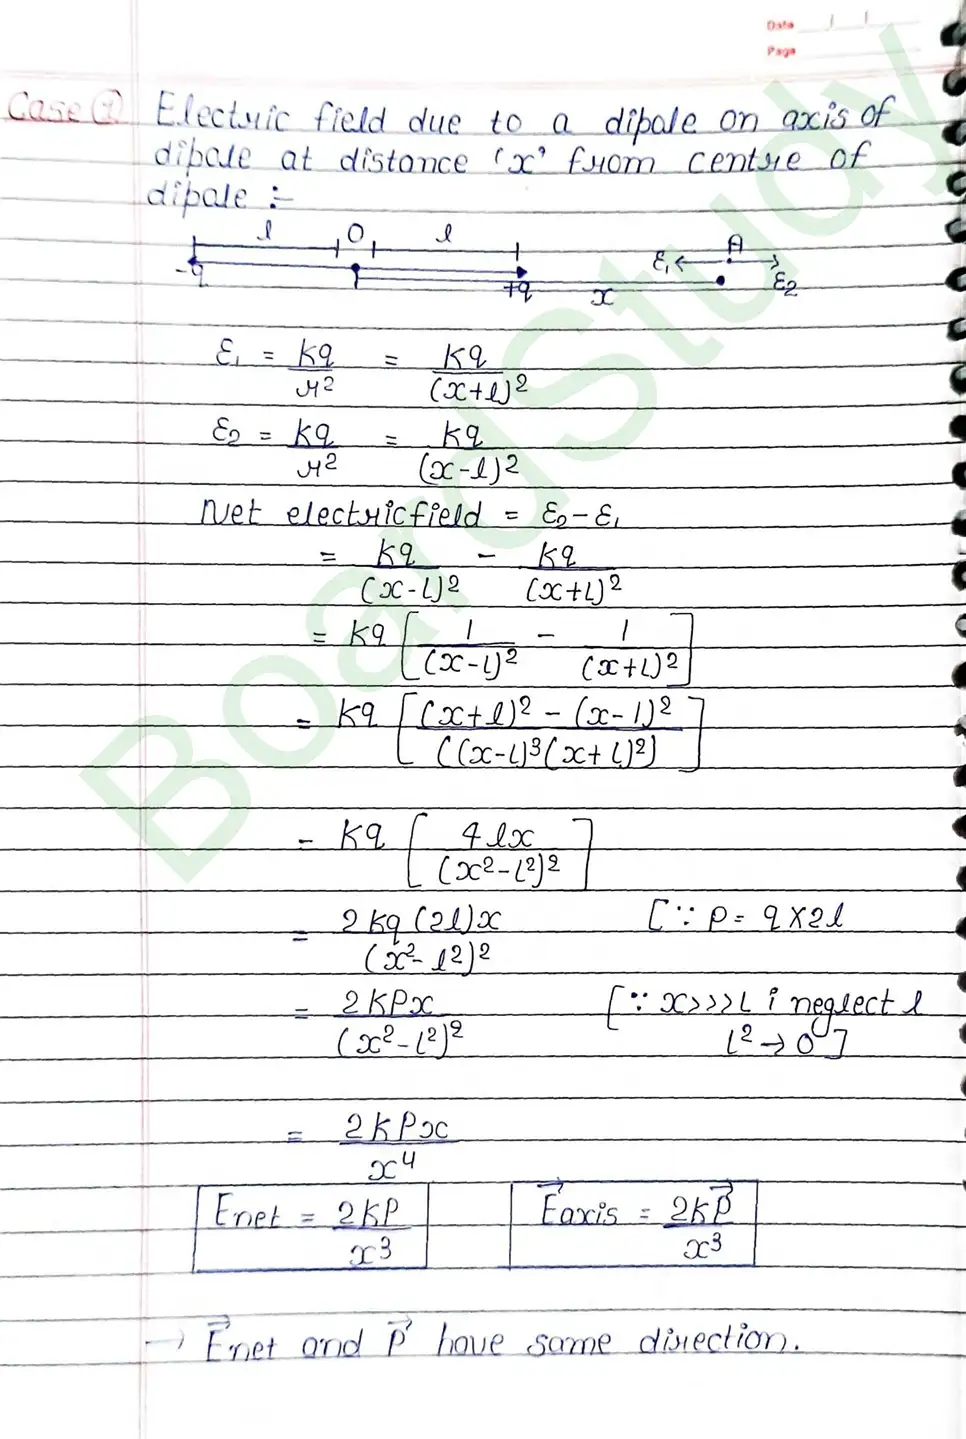 Date / /
Page
Case ① Electric field due to a dipale on axis of
dipale at distance 'x' from centre of
dipale :-
l O l
-q +q x E₁ A E₂
E₁ = Kq/r² = Kq/(x+l)²
E₂ = Kq/r² = Kq/(x-l)²
Net electric field = E₂-E₁
= Kq/(x-l)² - Kq/(x+l)²
= Kq [1/(x-l)² - 1/(x+l)²]
= Kq [(x+l)² - (x-l)²/((x-l)³(x+l)²)]
= Kq [4lx/(x²-l²)²]
= 2Kq(2l)x/(x²-l²)² [∵ P = q×2l
= 2KPx/(x²-l²)² [∵ x>>>l i neglect l
l²→0]
= 2KPx/x⁴
Enet = 2KP/x³ E⃗axis = 2KP⃗/x³
→ E⃗net and P⃗ have same direction.
BoardStudy